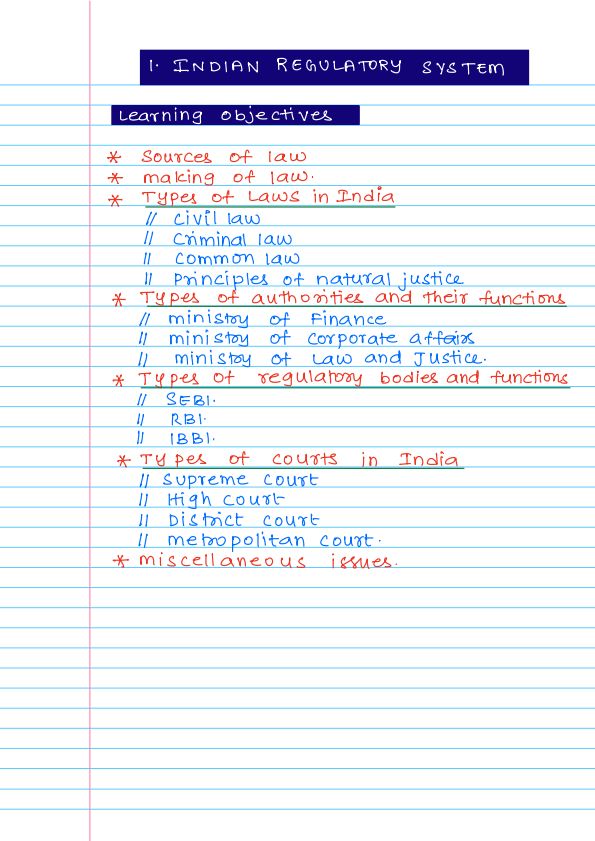 1. INDIAN REGULATORY SYSTEM
Learning objectives
* Sources of law
* making of law.
* Types of Laws in India
// Civil law
// Criminal law
// Common law
// Principles of natural justice
* Types of authorities and their functions
// ministry of Finance
// ministry of Corporate affairs
// ministry of Law and Justice.
* Types of regulatory bodies and functions
// SEBI.
// RBI.
// IBBI.
* Types of courts in India
// Supreme court
// High court
// District court
// metropolitan court.
* miscellaneous issues.